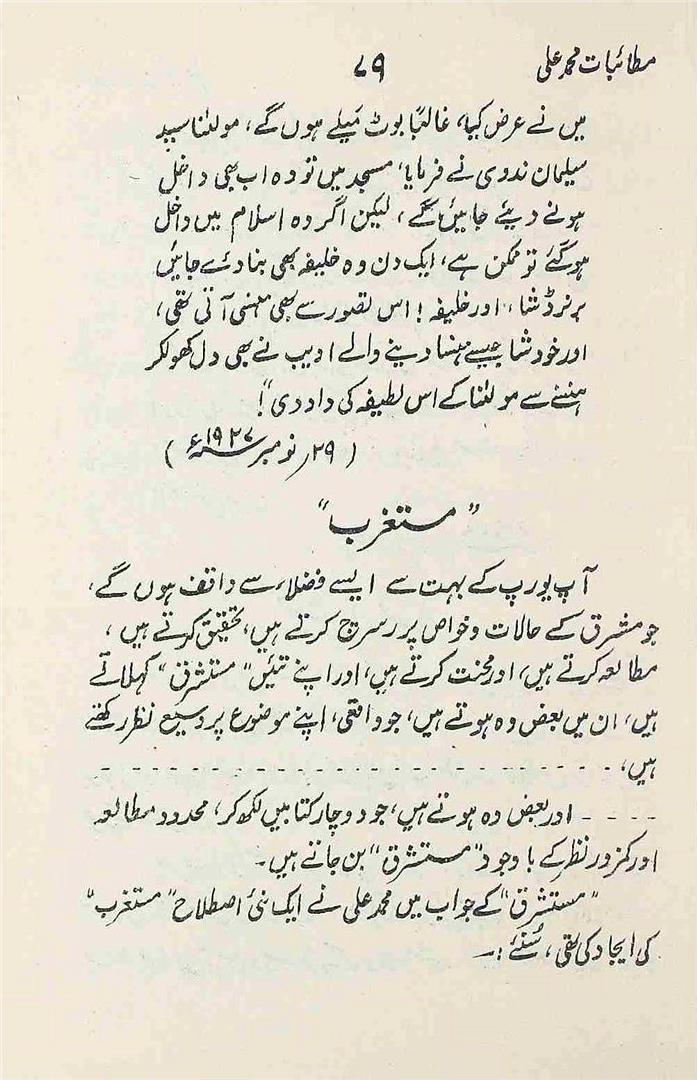 مطائبات محمد علی
۷۹
میں نے عرض کیا، غالباً بوٹ مَیلے ہوں گے، مولٰنا سید
سیلمان ندوی نے فرمایا، مسجد میں تو وہ اب بھی داخل
ہونے دیئے جائیں گے، لیکن اگر وہ اسلام میں داخل
ہو گئے تو ممکن ہے، ایک دن وہ خلیفہ بھی بنا دئے جائیں
برنرڈ شا، اور خلیفہ! اس تصور سے بھی ہنسی آتی تھی،
اور خود شا جیسے ہنسا دینے والے ادیب نے بھی دل کھولکر
ہنسنے سے مولٰنا کے اس لطیفہ کی داد دی"!
(۲۹؍ نومبر ۱۹۲۷ء)
"مستغرب"
آپ یورپ کے بہت سے ایسے فضلاء سے واقف ہوں گے،
جو مشرق کے حالات و خواص پر ریسرچ کرتے ہیں، تحقیق کرتے ہیں،
مطالعہ کرتے ہیں، اور محنت کرتے ہیں، اور اپنے تئیں "مستشرق" کہلاتے
ہیں، ان میں بعض وہ ہوتے ہیں، جو واقعی، اپنے موضوع پر وسیع نظر رکھتے
ہیں، - - - - - - - - - - - - - - - - - - - - - - - -
- - - - اور بعض وہ ہوتے ہیں، جو دو چار کتابیں لکھ کر، محدود مطالعہ
اور کمزور نظر کے باوجود "مستشرق" بن جاتے ہیں۔
"مستشرق" کے جواب میں محمد علی نے ایک نئی اصطلاح "مستغرب"
کی ایجاد کی تھی، سُنئے :۔